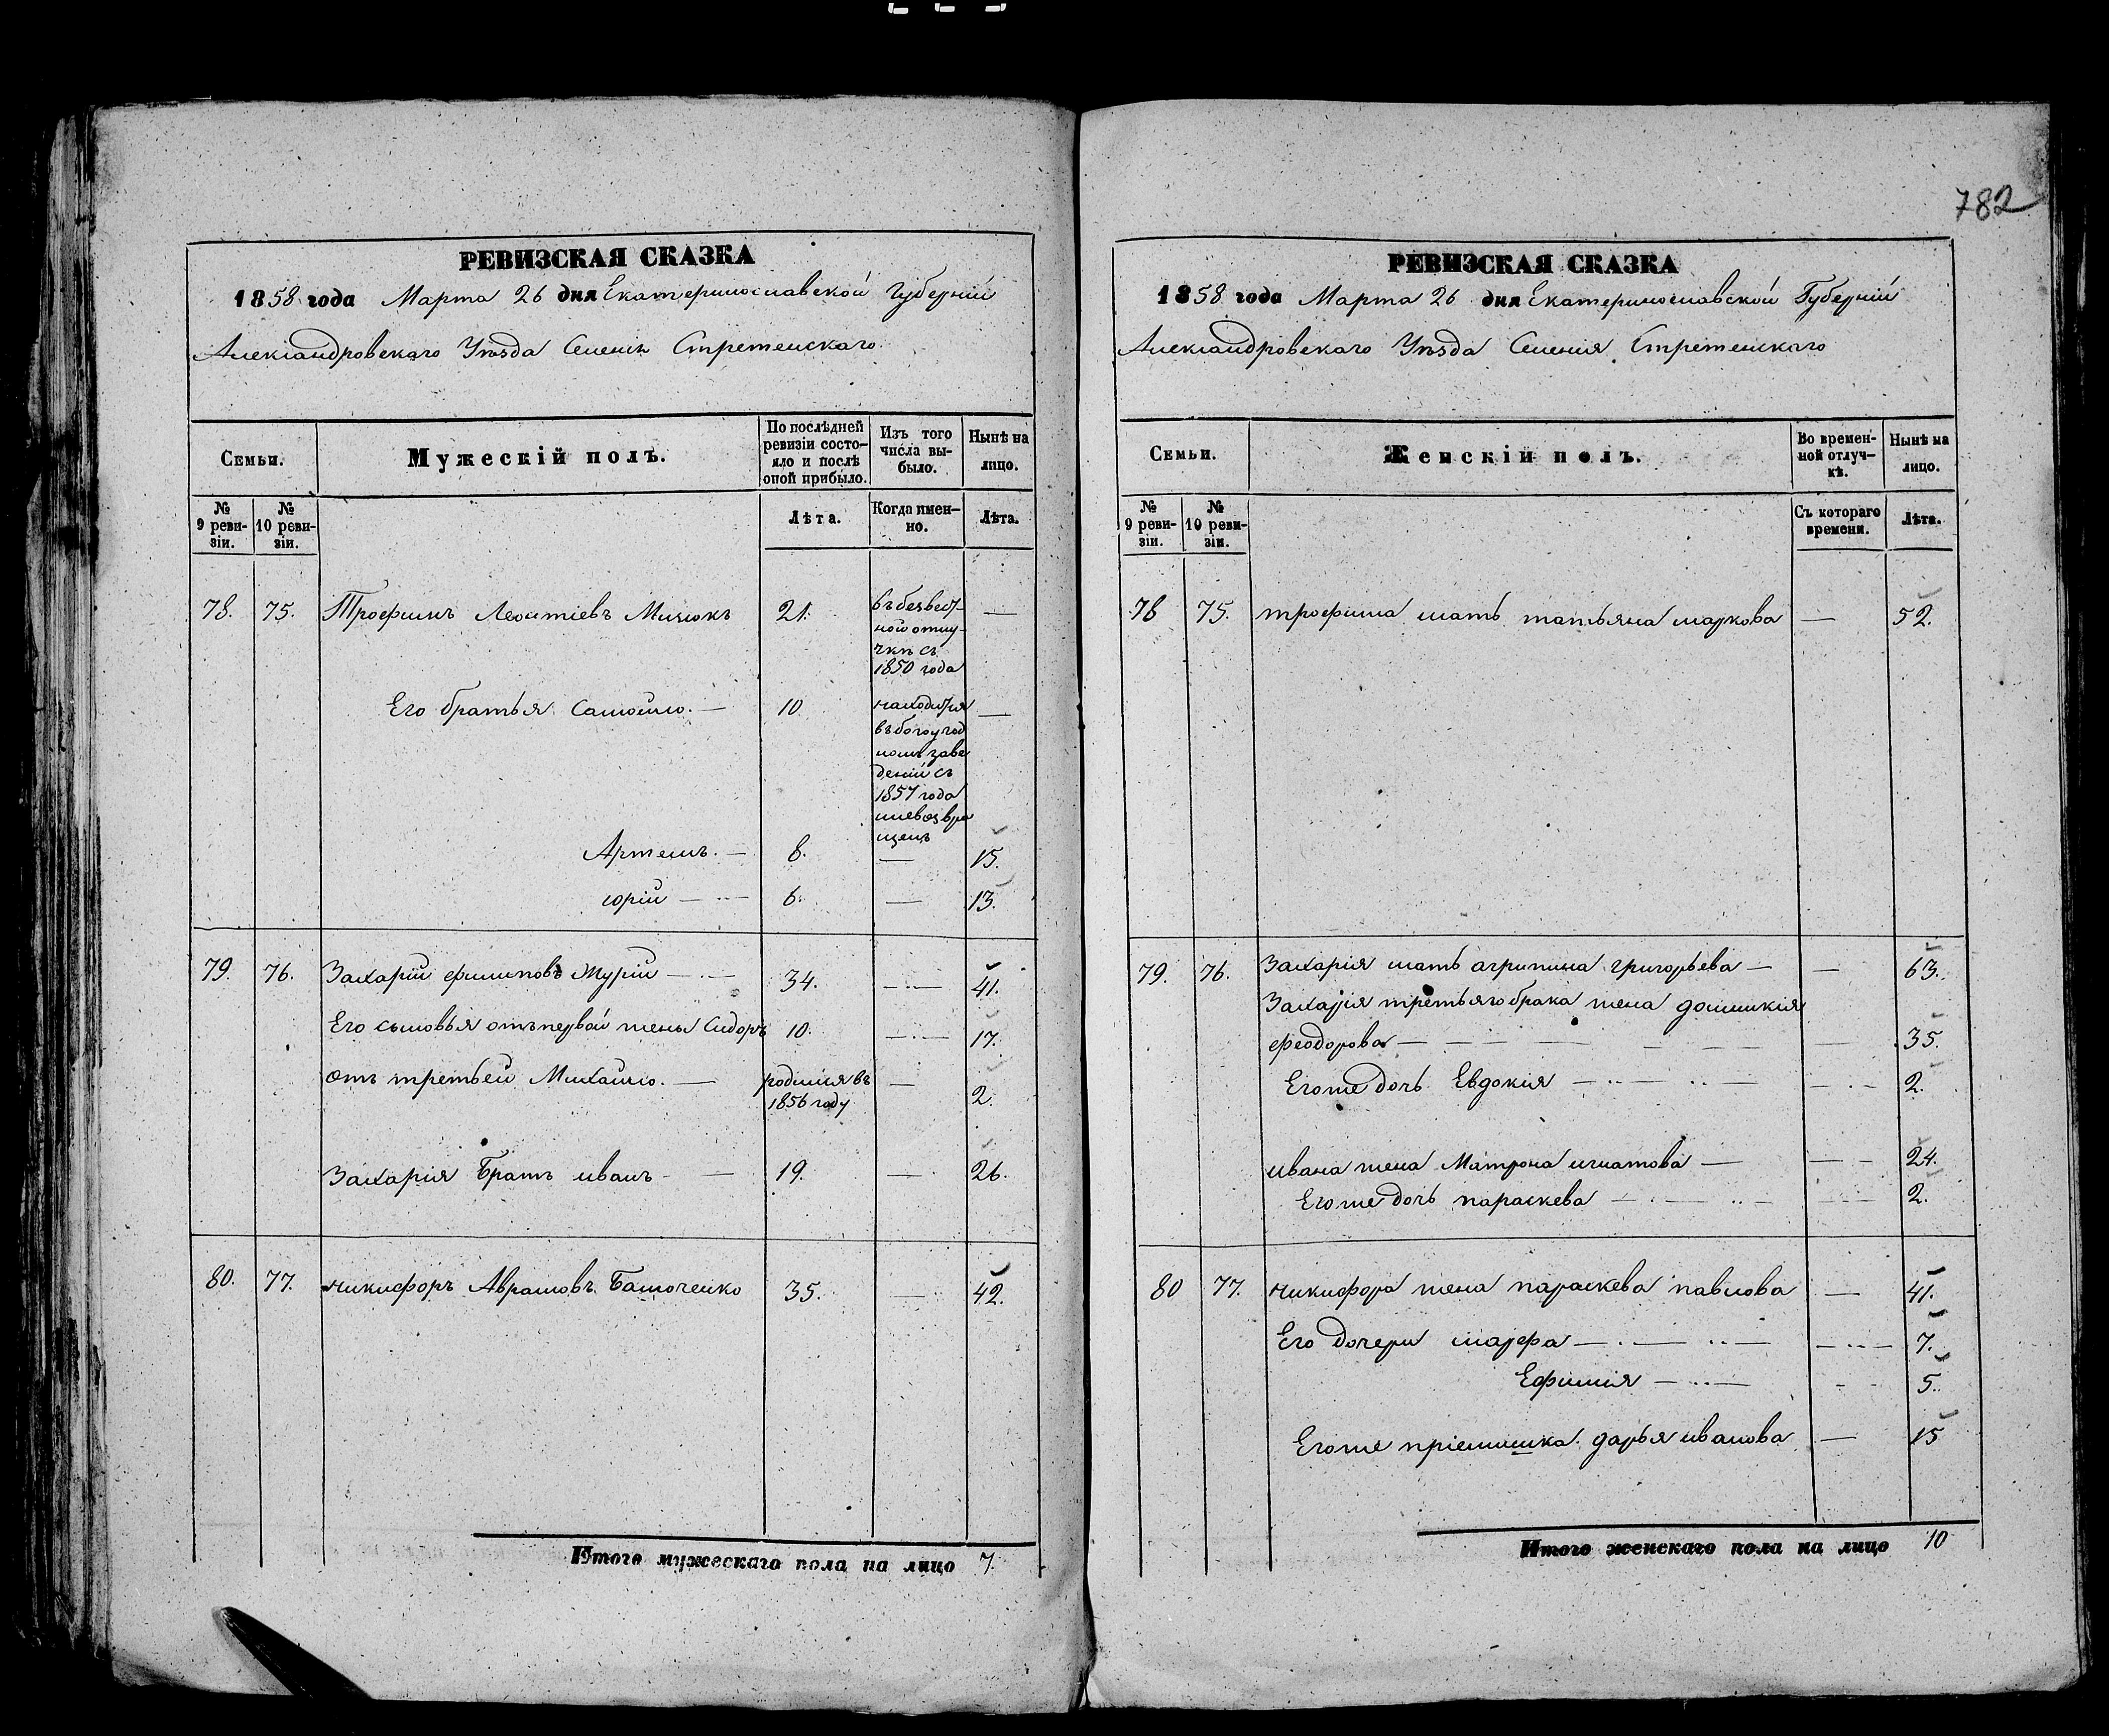 782
РЕВИЗСКАЯ СКАЗКА
1858 года Марта 26 дня Екатеринославской Губерніи
Александровскаго Уѣзда Селенія Стретенскаго
Семьи.
Мужескій полъ.
По послѣдней
ревизіи состо-
яло и послѣ
оной прибыло.
Изъ того
числа вы-
было.
Нынѣ на
лицо.
№
9 реви-
зіи.
№
10 реви-
зіи.
Лѣта.
Когда имен-
но.
Лѣта.
78. 75. Трофимъ Леонтіевъ 21. въ безвест- —
ной отлу-
чкѣ съ
1850 года
Его братья Самойло. — 10. находится —
въ богоугод
номъ заве
деніи съ
1857 года
и невозвра
щенъ
Артемъ. — 8. — 15.
юрій — 6. — 13.
79. 76. Захарій филиповъ Мурій — 34. — 41.
Его сыновья отъ первой жены Сидоръ 10. — 17.
отъ третьей Михайло. — родился въ — 2.
1856 году
Захарія Братъ иванъ — 19. — 26.
80. 77. никифоръ Аврамовъ Башоченко 35. — 42.
Итого мужескаго пола на лицо 7.
РЕВИЗСКАЯ СКАЗКА
1858 года Марта 26 дня Екатеринославской Губерніи
Александровскаго Уѣзда Селенія Стретенскаго
Семьи.
Женскій полъ.
Во времен-
ной отлуч-
кѣ.
Нынѣ на
лицо.
№
9 реви-
зіи.
№
10 реви-
зіи.
Съ котораго
времени.
Лѣта.
78 75. трофима мать татьяна маркова — 52.
79. 76. Захарія мать агрипина григорьева — — 63.
Захарія третьяго брака жена домникія
феодорова — — 35.
Егоже дочь Евдокія — — 2.
ивана жена Матрона игнатова — — 24.
Егоже дочь параскева — — 2.
80 77. никифора жена параскева павлова — 41.
Его дочери марфа — — 7.
Ефимія — — 5.
Егоже пріемишка дарья иванова — 15
Итого женскаго пола на лицо 10